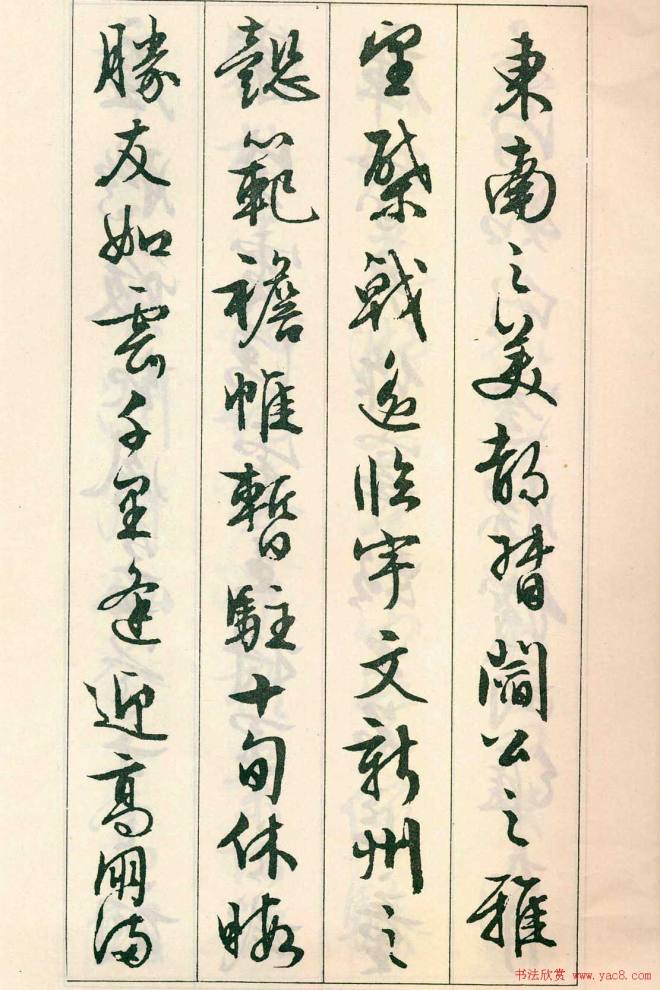 東南之美都督閻公之雅
望棨戟遙臨宇文新州之
懿範襜帷暫駐十旬休暇
勝友如雲千里逢迎高朋滿
书法欣赏 www.yac8.com